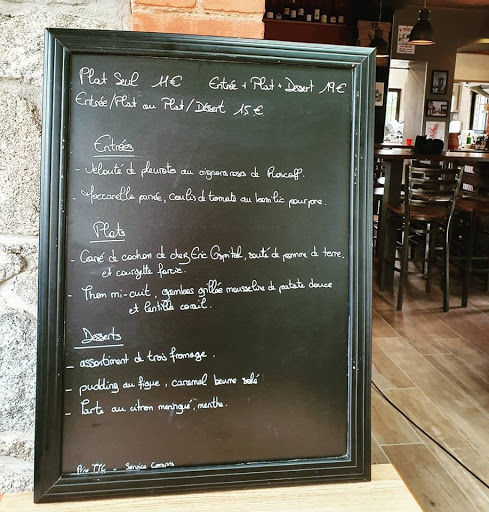 Plat Seul 11€ Entrée + Plat + Dessert 19€
Entrée/Plat ou Plat/Désert 15€
Entrées
- Velouté de pleurotes au oignons roses de Roscoff.
- Mozzarella panée, coulis de tomate au basilic pourpre.
Plats
- Carré de cochon de chez Eric Ospital, sauté de pomme de terre.
et courgette farcie.
- Thon mi-cuit, gambas grillée mousseline de patate douce
et lentille corail.
Desserts
- assortiment de trois fromage.
- pudding au figue, caramel beurre salé
- Tarte au citron meringué, menthe.
Prix TTC - Service Compris